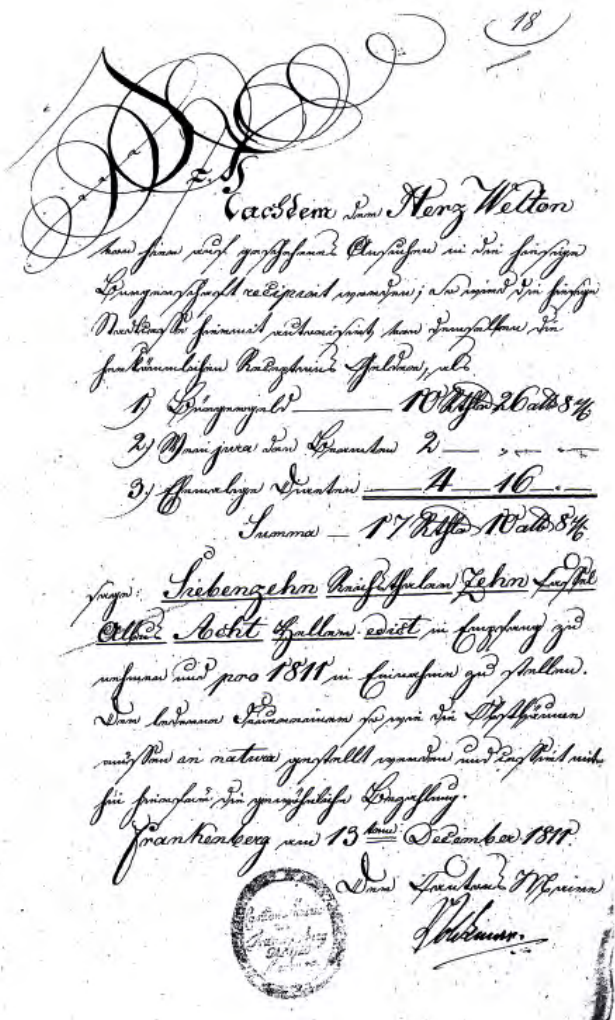 18
Nachdem dem Herz Welton
von hier auf geschehenes Ansuchen in die hiesige
Bürgerschaft recipirt worden; so wird die hiesige
Stadtkasse hiermit autorisirt von demselben die
herkömmlichen Receptions Gelder, als
1) Bürgergeld — 10 Rthlr 26 alb 8 hl
2) Wein jura den Beamten 2 — „ — „
3) Ehemalige Quarten — 4 — 16 —
Summa — 17 Rthlr 10 alb 8 hl
sage: Siebenzehn Reichsthaler Zehn Cassel
Albus Acht Heller edict in Empfang zu
nehmen und pro 1811 in Einnahme zu stellen.
Der lederne Feuereimer so wie die Obstbäume
müssen in natura gestellt werden und cessirt mit
hin hierfür die gewöhnliche Bezahlung.
Frankenberg am 13 tens December 1811.
Der Cantons Maire